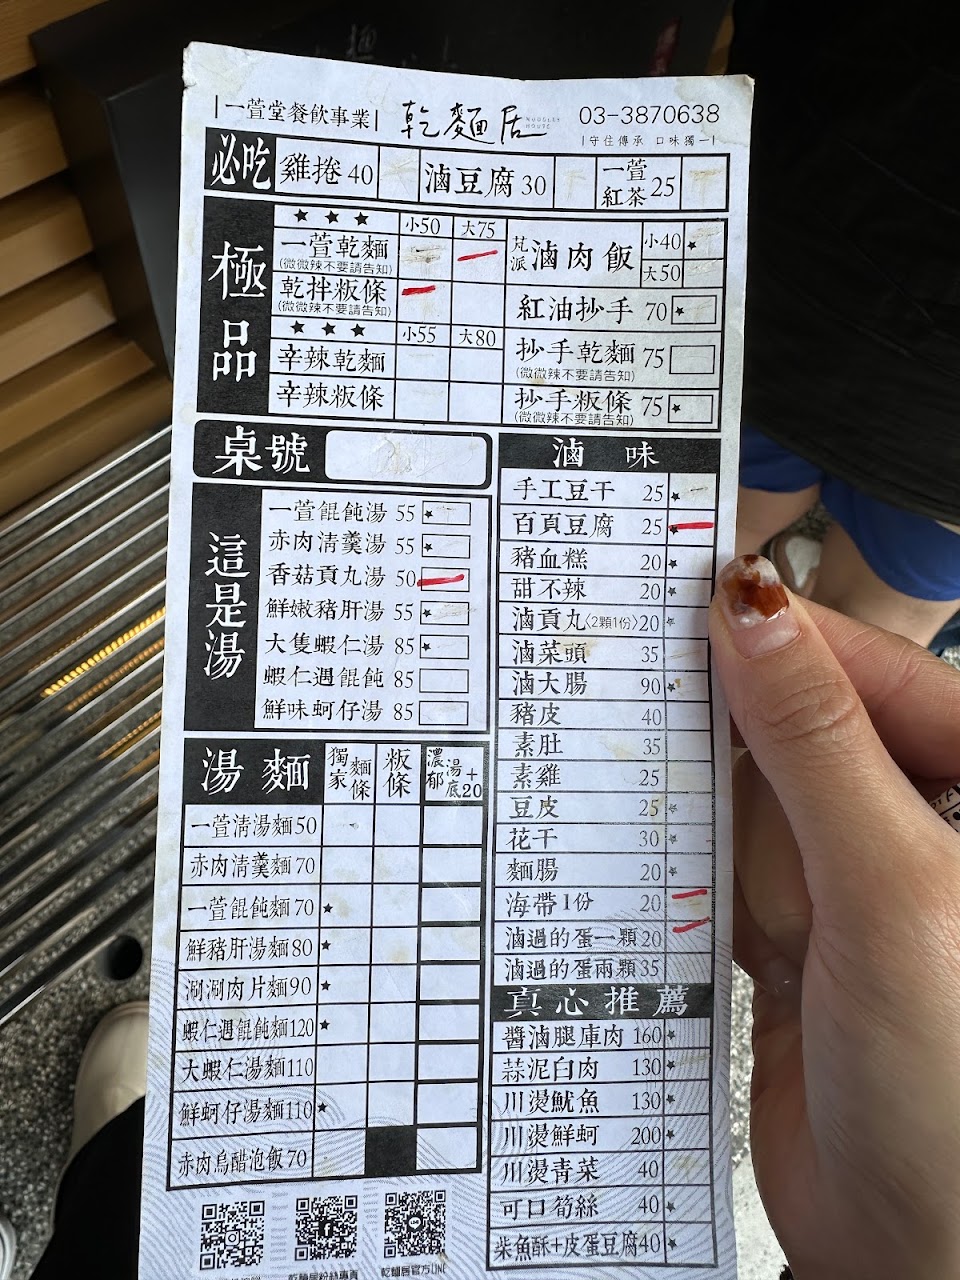 |一萱堂餐飲事業| 乾麵居 NOODLES HOUSE 03-3870638
|守住傳承 口味獨一|
必吃 雞捲 40 滷豆腐 30 一萱紅茶 25
極品
★ ★ ★ 小50 大75
一萱乾麵
(微微辣不要請告知)
乾拌粄條
(微微辣不要請告知)
★ ★ ★ 小55 大80
辛辣乾麵
辛辣粄條
梵派 滷肉飯 小40 大50
紅油抄手 70
抄手乾麵 75
(微微辣不要請告知)
抄手粄條 75
(微微辣不要請告知)
桌號
這是湯
一萱餛飩湯 55
赤肉清羹湯 55
香菇貢丸湯 50
鮮嫩豬肝湯 55
大隻蝦仁湯 85
蝦仁遇餛飩 85
鮮味蚵仔湯 85
湯麵 獨家麵條 粄條 濃郁湯底+20
一萱清湯麵50
赤肉清羹麵 70
一萱餛飩麵 70
鮮豬肝湯麵 80
涮涮肉片麵90
蝦仁遇餛飩麵120
大蝦仁湯麵110
鮮蚵仔湯麵110
赤肉烏醋泡飯 70
滷味
手工豆干 25
百頁豆腐 25
豬血糕 20
甜不辣 20
滷貢丸〈2顆1份〉20
滷菜頭 35
滷大腸 90
豬皮 40
素肚 35
素雞 25
豆皮 25
花干 30
麵腸 20
海帶1份 20
滷過的蛋一顆 20
滷過的蛋兩顆 35
真心推薦
醬滷腿庫肉 160
蒜泥白肉 130
川燙魷魚 130
川燙鮮蚵 200
川燙青菜 40
可口筍絲 40
柴魚酥+皮蛋豆腐40
乾麵居粉絲專頁
乾麵居官方LINE